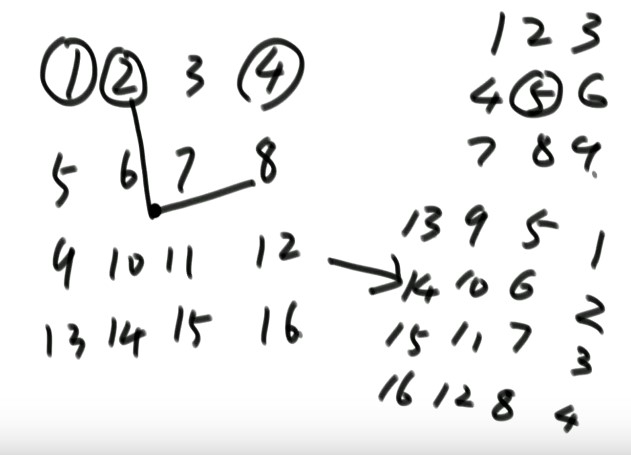 1 2 3 4
5 6 7 8
9 10 11 12
13 14 15 16
1 2 3
4 5 6
7 8 9
13 9 5 1
14 10 6 2
15 11 7 3
16 12 8 4